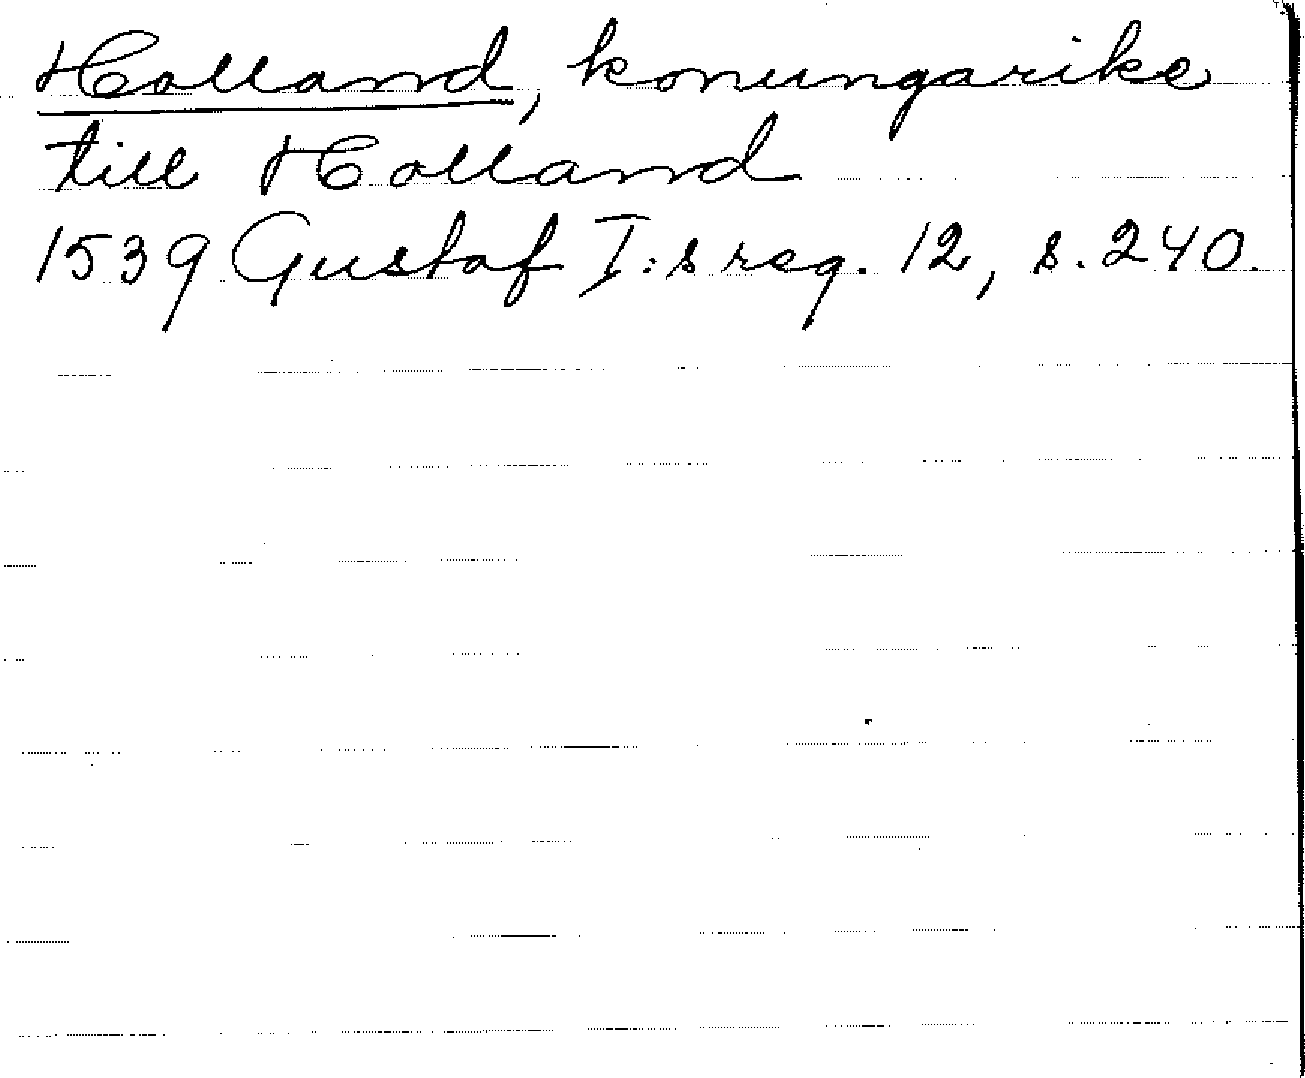 Holland, konungarike
till Holland
1539 Gustaf I:s reg. 12, s. 240.